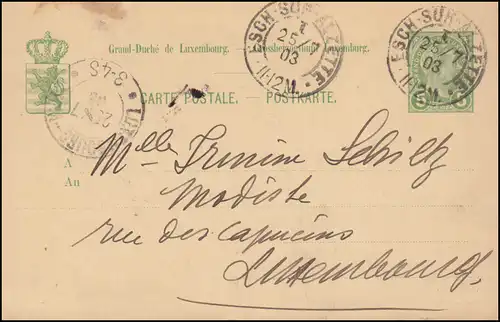 Grand-Duché de Luxembourg. – Grossherzogtum Luxemburg.
ESCH-SUR-ALZETTE
25/7
03
11-12M.
ESCH-SUR-ALZETTE
25/7
03
11-12M.
5 5
3-4S
CARTE POSTALE. – POSTKARTE.
A Mlle Schiltz
An
Modiste
rue des Capucins
Luxembourg.